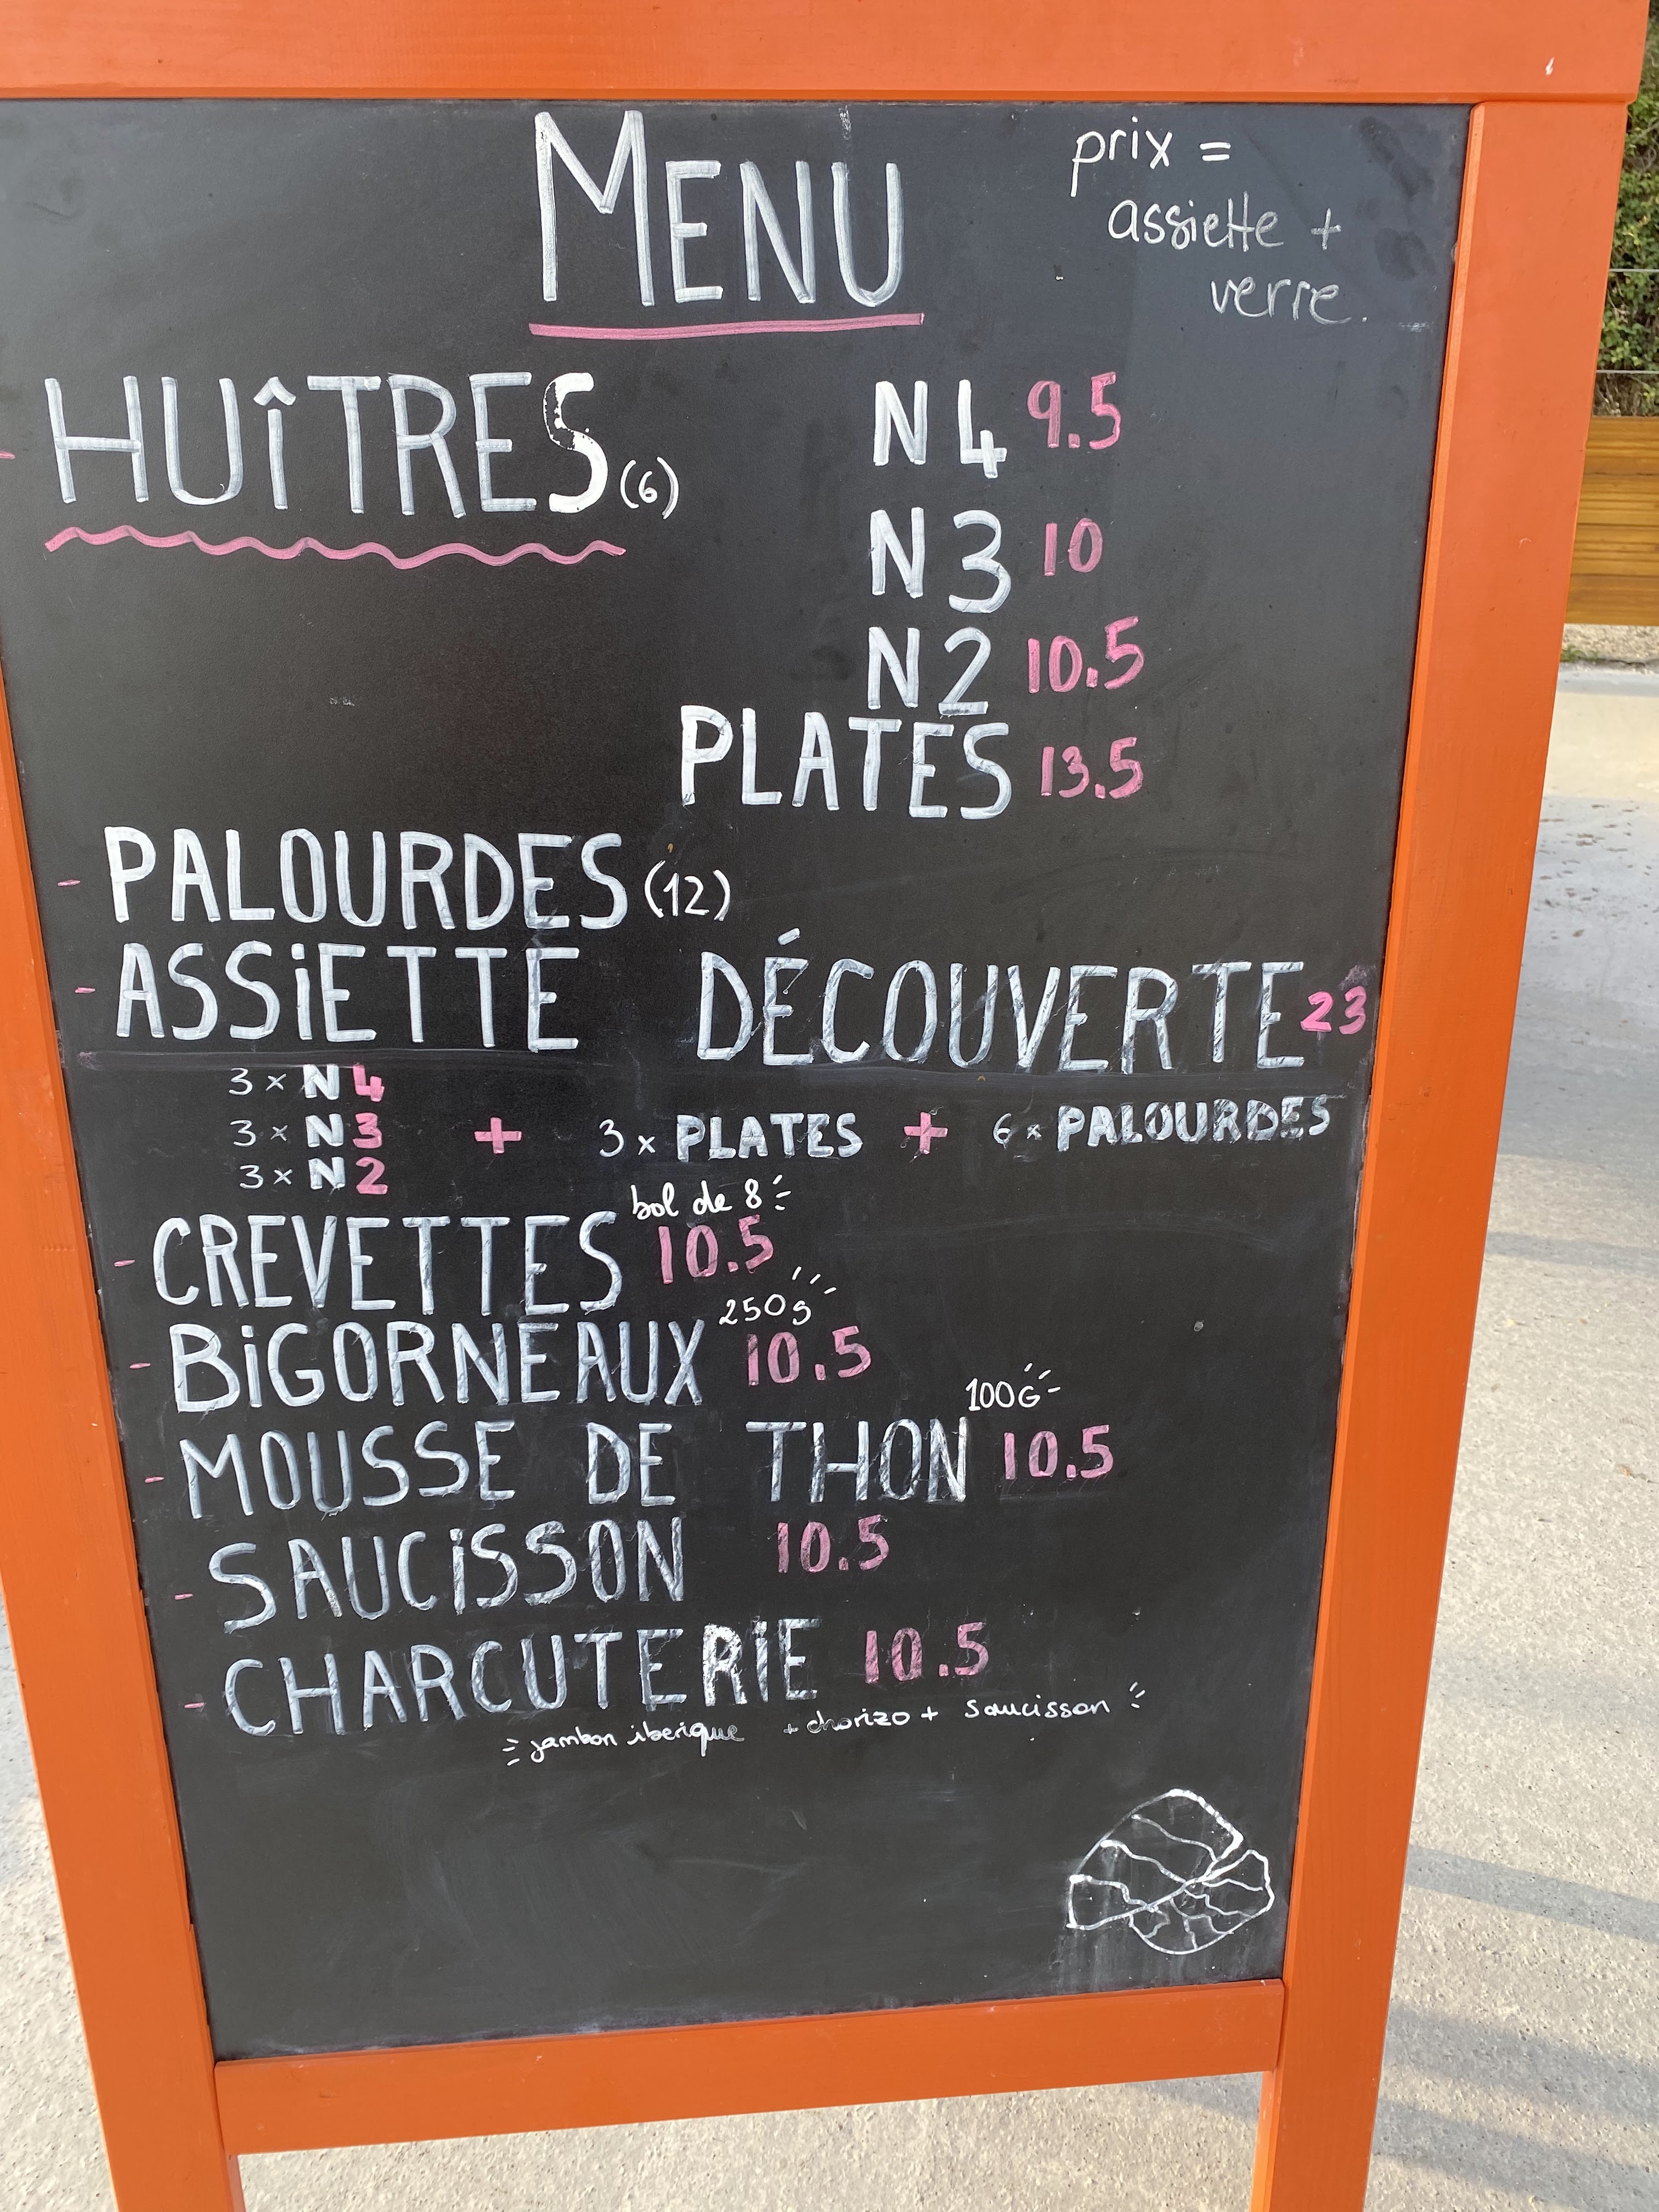 MENU
prix =
assiette +
verre.
- HUÎTRES (6)
N4 9.5
N3 10
N2 10.5
PLATES 13.5
- PALOURDES (12)
- ASSIETTE DÉCOUVERTE 23
3 x N4
3 x N3 + 3 x PLATES + 6 x PALOURDES
3 x N2
bol de 8
- CREVETTES 10.5
250g
- BIGORNEAUX 10.5
100G
- MOUSSE DE THON 10.5
- SAUCISSON 10.5
- CHARCUTERIE 10.5
jambon iberique + chorizo + saucisson